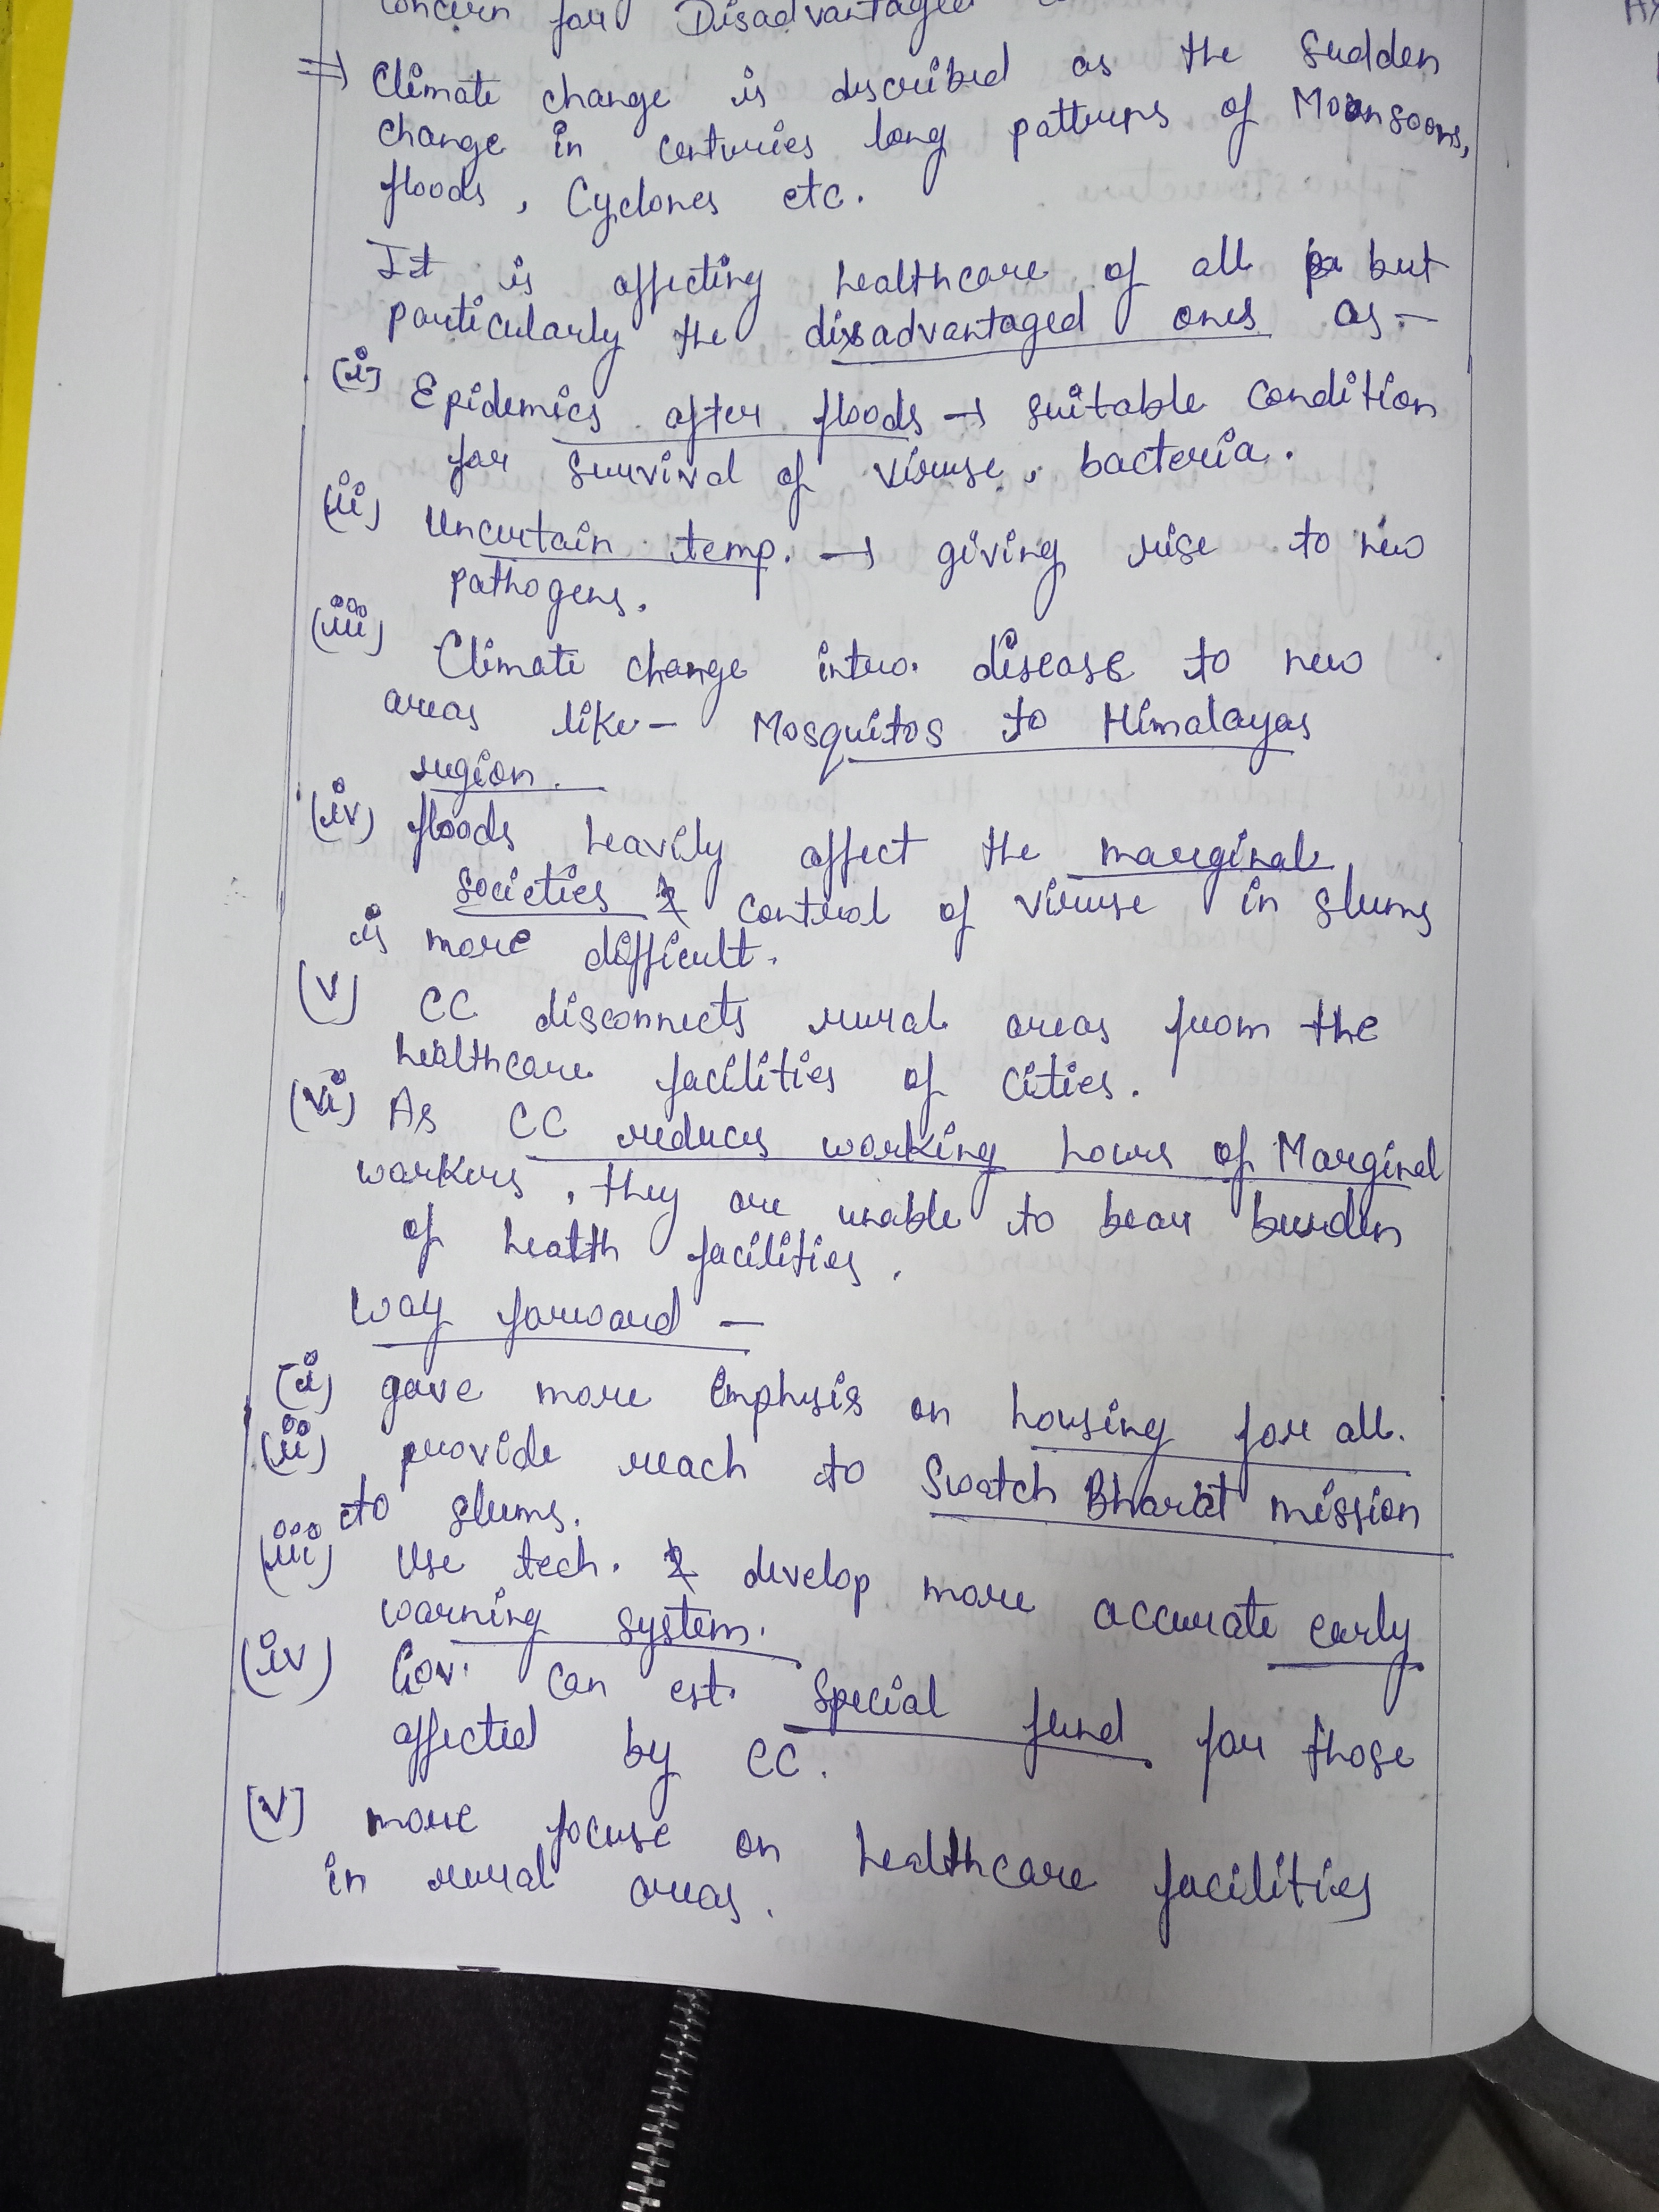 concern for Disadvantaged
⇒ Climate change is described as the sudden
change in centuries long patterns of Moonsoons,
floods, Cyclones etc.
It is affecting healthcare of all but
particularly the disadvantaged ones as -
(i) Epidemics after floods → suitable condition
for survival of viruse, bacteria.
(ii) Uncertain temp. → giving rise to new
pathogens.
(iii) Climate change intro. disease to new
areas like - Mosquitos to Himalayas
region.
(iv) floods heavily affect the marginal
societies & control of viruse in slums
is more difficult.
(v) CC disconnects rural areas from the
healthcare facilities of cities.
(vi) As CC reduces working hours of Marginal
workers, they are unable to bear burden
of health facilities.
Way forward -
(i) gave more emphysis on housing for all.
(ii) provide reach to Swatch Bharat mission
to slums.
(iii) Use tech. & develop more accurate early
warning system.
(iv) Gov. can est. special fund for those
affected by CC.
(v) more focuse on healthcare facilities
in rural areas.